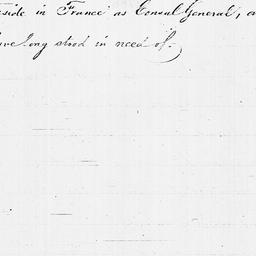 side in France as Consul General,
long stood in need of.